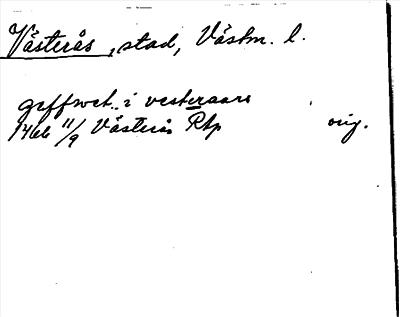 Västerås, stad, Västm. l.
geffwet i vesteraars
1466 11/9 Västerås Rep orig.